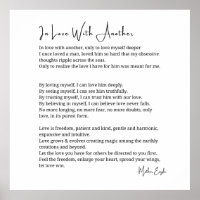 In Love With Another
In love with another, only to love myself deeper
I once loved a man, loved him so hard that my obsessive
thoughts ripple across the seas.
Only to realize the love I have for him was meant for me.
By loving myself, I can love him deeply.
By seeing myself, I can see him truthfully.
By trusting myself, I can trust him with our love.
By believing in myself, I can believe love never fails.
No more longing, no more fear, no more doubts, only
love, in its purest form.
Love is freedom, patient and kind, gentle and harmonic,
expansive and intuitive.
Love grows & evolves creating magic among the earthly
creations and beyond.
Let the love you have for others be directed to you first.
Feel the freedom, enlarge your heart, spread your wings,
let love win.